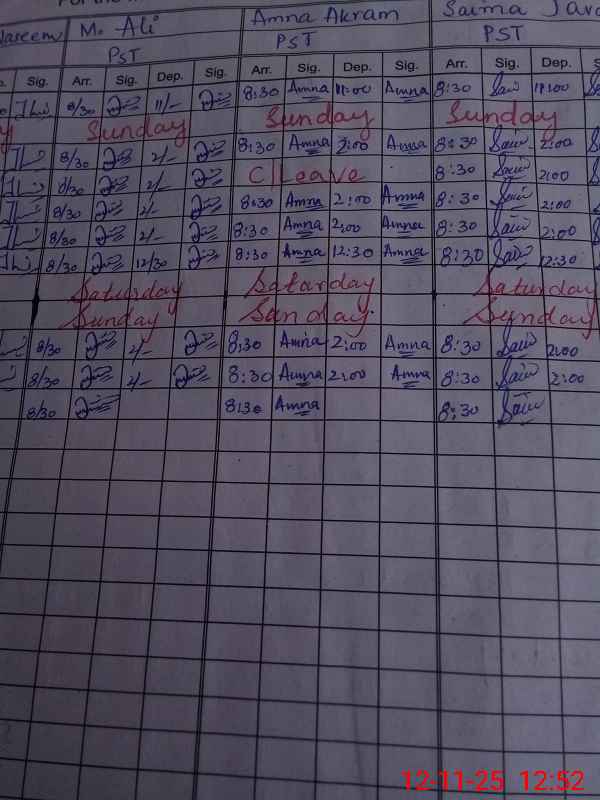 For the
Nareem M. Ali Amna Akram Saima Java
PST PST PST
Sig. Arr. Sig. Dep. Sig. Arr. Sig. Dep. Sig. Arr. Sig. Dep. S
8/30 11/- 8:30 Amna 11:00 Amna 8:30 Sai 11:00
Sunday Sunday Sunday
8/30 2/- 8:30 Amna 2:00 Amna 8:30 Sai 2:00
8/30 2/- C/Leave 8:30 Sai 2:00
8/30 2/- 8:30 Amna 2:00 Amna 8:30 Sai 2:00
8/30 2/- 8:30 Amna 2:00 Amna 8:30 Sai 2:00
8/30 12/30 8:30 Amna 12:30 Amna 8:30 Sai 12:30
Saturday Saturday Saturday
Sunday Sunday Sunday
8/30 2/- 8:30 Amna 2:00 Amna 8:30 Sai 2:00
8/30 2/- 8:30 Amna 2:00 Amna 8:30 Sai 2:00
8/30 8:30 Amna 8:30 Sai
12-11-25 12:52